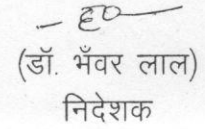 (डॉ. भँवर लाल)
निदेशक